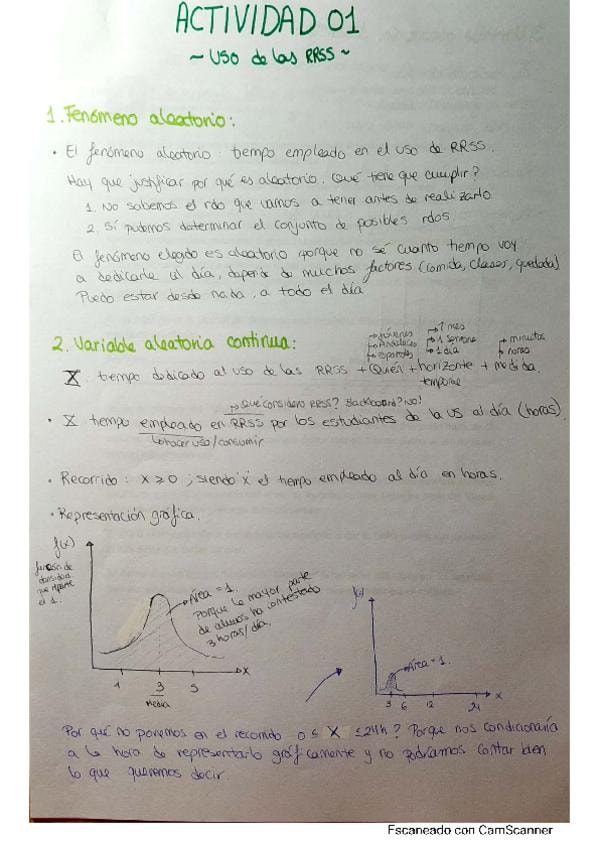 ACTIVIDAD 01
~ USO de las RRSS ~
1. Fenómeno aleatorio:
• El fenómeno aleatorio: tiempo empleado en el uso de RRSS.
Hay que justificar por qué es aleatorio. ¿Qué tiene que cumplir?
1. No sabemos el rdo que vamos a tener antes de realizarlo
2. Sí podemos determinar el conjunto de posibles rdos.
El fenómeno elegido es aleatorio porque no sé cuanto tiempo voy
a dedicarle al día, depende de muchos factores (comida, clases, quedada)
Puedo estar desde nada, a todo el día
2. Variable aleatoria continua:
→ jóvenes → 1 mes
→ Andaluces → 1 semana → minutos
→ españoles → 1 día → horas
X: tiempo dedicado al uso de las RRSS + Quién + horizonte + medida.
temporal
→ Qué considero RRSS? Blackboard? NO!
• X: tiempo empleado en RRSS por los estudiantes de la US al día (horas).
hacer uso/consumir
• Recorrido: x ≥ 0 ; siendo 'x' el tiempo empleado al día en horas.
• Representación gráfica.
f(x)
función de
densidad
que reparte
el 1.
Área = 1.
Porque la mayor parte
de alumnos ha contestado
3 horas/día.
1 3 5 x
Media
f(x)
Área = 1.
3 6 12 24 x
Por qué no ponemos en el recorrido 0 ≤ X ≤ 24h? Porque nos condicionaría
a la hora de representarlo gráficamente y no podríamos contar bien
lo que queremos decir.
Escaneado con CamScanner